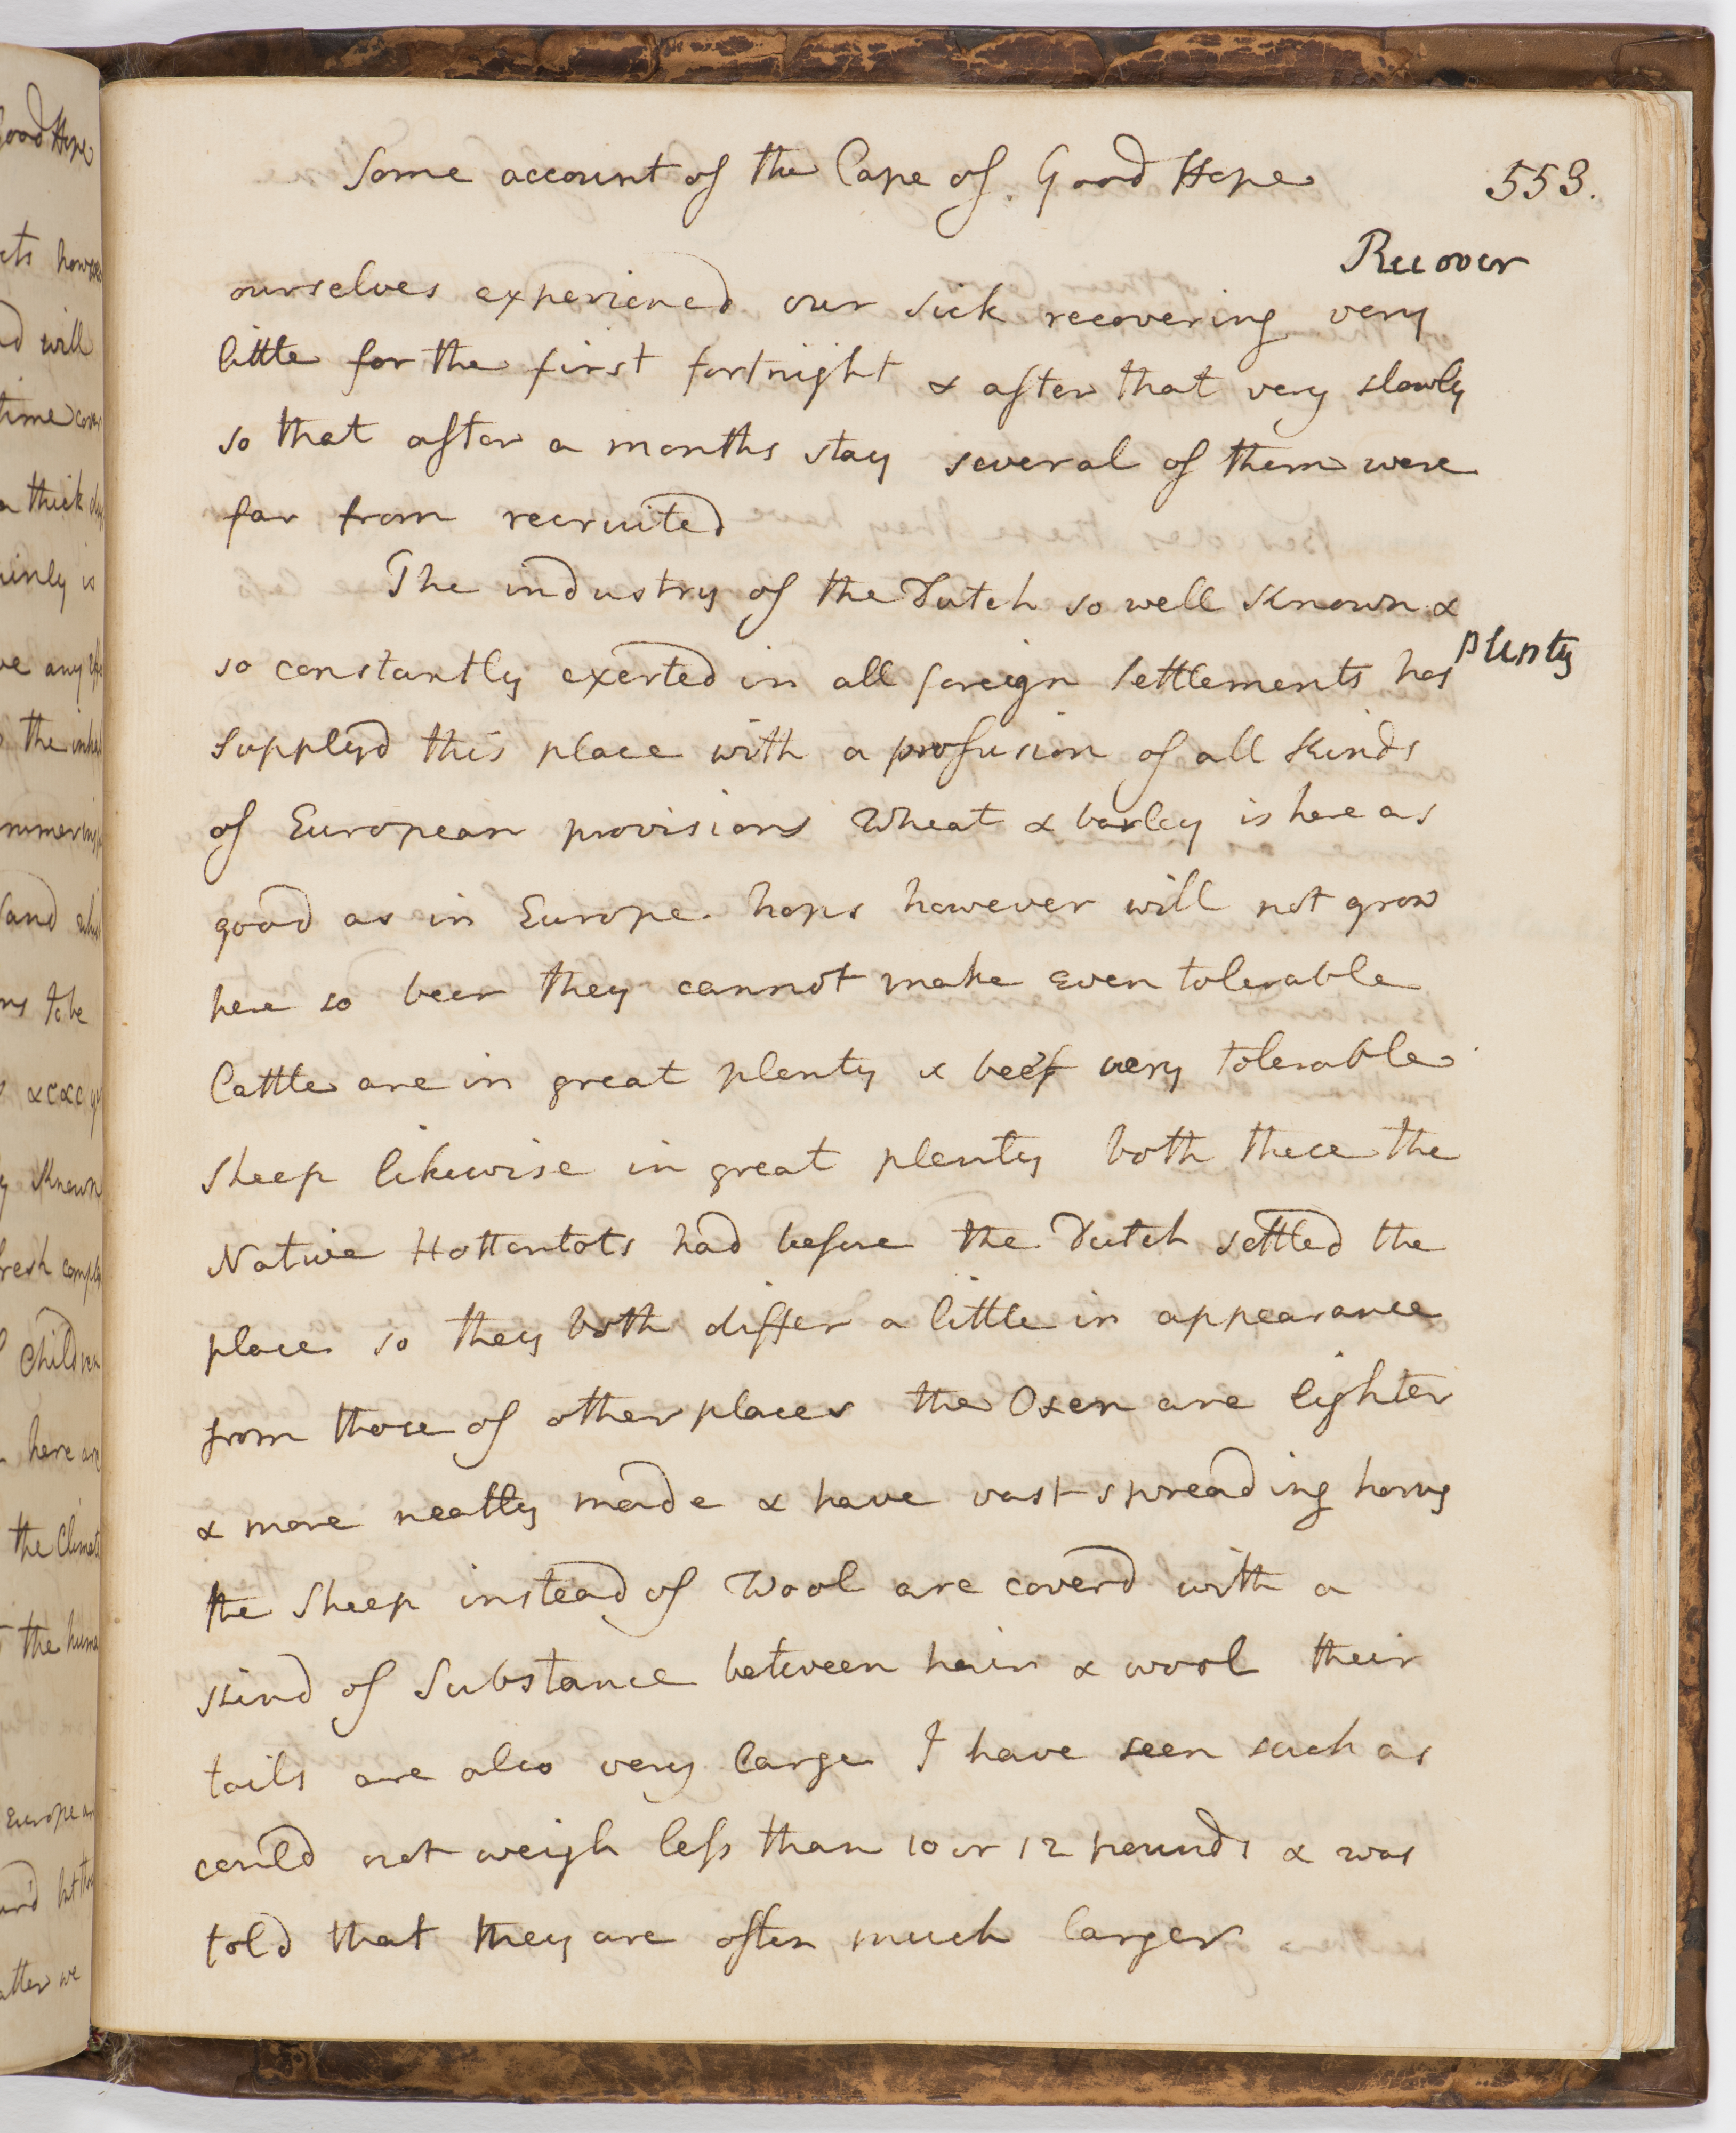 Some account of the Cape of Good Hope 553.
Recover
ourselves experiencd our sick recovering very
little for the first fortnight & after that very slowly
so that after a months stay several of them were
far from recruited
The industry of the Dutch so well known &
so constantly exerted in all foreign settlements has
plenty
supplyd this place with a profusion of all kinds
of European provisions Wheat & barley is here as
good as in Europe. hops however will not grow
here so beer they cannot make even tolerable
Cattle are in great plenty & beef very tolerable
Sheep likewise in great plenty both these the
Native Hottentots had before the Dutch settled the
place so they both differ a little in appearance
from those of other places the Oxen are lighter
& more neatly made & have vast spreading horns
the Sheep instead of Wool are coverd with a
kind of Substance between hair & wool their
tails are also very large I have seen such as
could not weigh less than 10 or 12 pounds & was
told that they are often much larger
Good Hope
however
will
time
a thick
is
any
the
and
to be
&c &c
known
fresh
Children
here are
the Climate
the
European
but
we